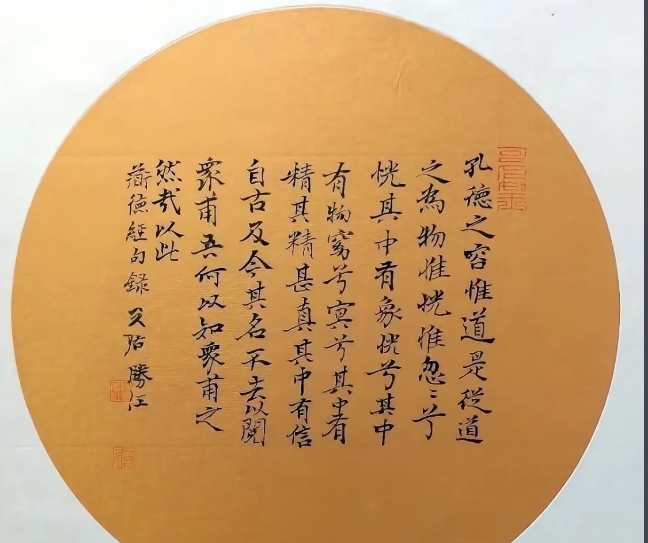 孔德之容惟道是從道
之為物惟恍惟忽〻兮
恍其中有象恍兮其中
有物窈兮冥兮其中有
精其精甚真其中有信
自古及今其名不去以閱
眾甫吾何以知眾甫之
然哉以此
德經句錄 勝江